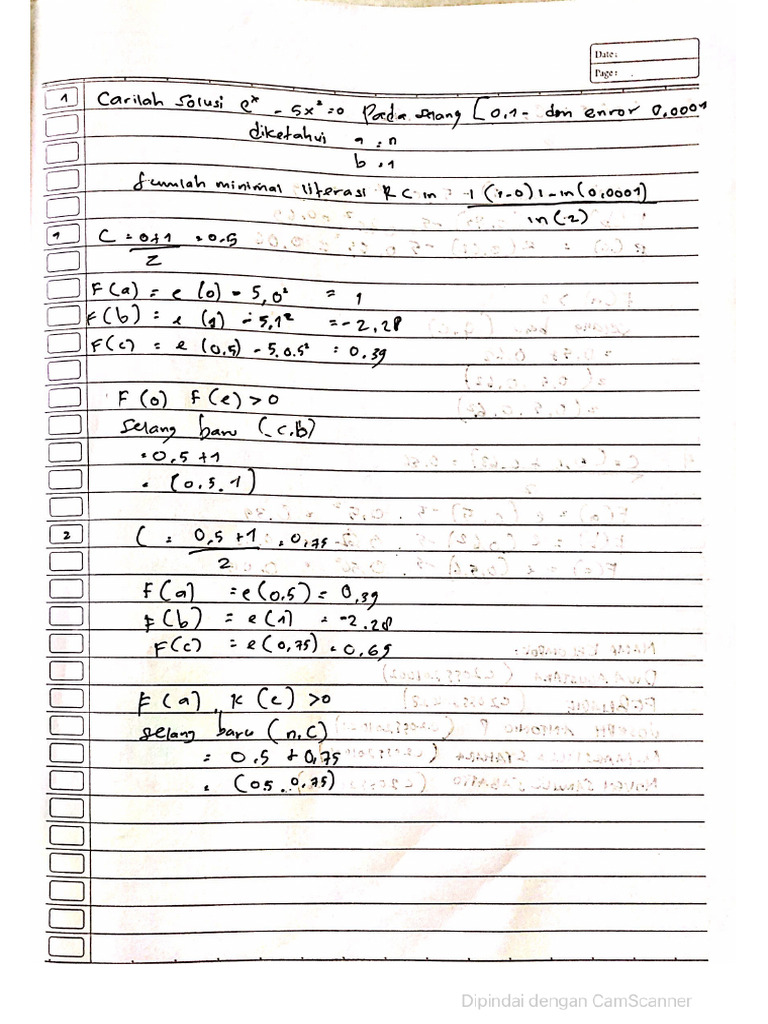 Date:
Page:
1 Carilah solusi e^x - 5x² = 0 Pada selang [0,1- dan error 0,0001
diketahui a = n
b = 1
Jumlah minimal literasi R C in = -1 (1-0) 1 - in (0,0001)
in (2)
1 C = 0+1 = 0.5
2
F(a) = e (0) - 5,0² = 1
F(b) = e (1) - 5,1² = -2,28
F(c) = e (0,5) - 5.0.5² = 0.39
F (0) F (e) > 0
Selang baru (c.b)
= 0,5 + 1
= (0.5.1)
2 C = 0,5 + 1 = 0,75
2
F(a) = e (0,5) = 0,39
F(b) = e (1) = -2.28
F(c) = e (0,75) = 0.69
F (a) K (c) > 0
selang baru (n.c)
= 0.5 + 0,75
= (05.0,75)
Dipindai dengan CamScanner